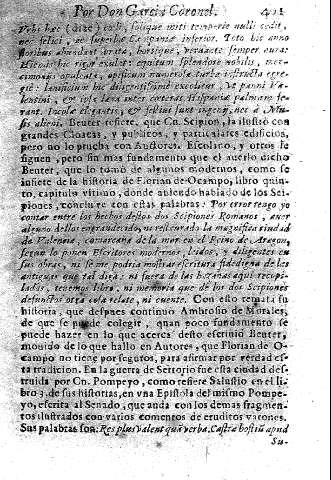 Por Don Garcia Coronel. 421
Vrbs hæc (dize) cœli, solique miti temperie nulli cedit,
nec felici, nec superbæ Campaniæ inferior. Toto hic anno
floribus abundant prata, hortique,
Hic solis hic rigor exulat: equitum splendore nobilis, mer-
cimoniis opulenta, opificum numerosa turba instructa egre
giè: lanificium hic diligentissimè excolitur,
panni Va-
lentini, & ipse luxu inter cæteras Hispaniæ palmam fe-
runt. Incolæ elegantis, & festiui sunt ingenij, nec à Mu-
sis alieni. Beuter refiere, que Cn. Scipion, la ilustrò con
grandes Cloacas, y publicos, y particulares edificios,
pero no lo prueba con Auctores. Escolano, y otros le
siguen, pero sin mas fundamento que el auerlo dicho
Beuter, que lo tomò de algunos modernos, como se
infiere de la historia de Florian de Ocampo, libro quin-
to, capitulo vltimo, donde auiendo hablado de los Sci-
piones, concluye con estas palabras: Por error tengo yo
contar entre los hechos destos dos Scipiones Romanos, auer
alguno dellos engrandecido, ni restaurado la magnifica ciudad
de Valencia, comarcana de la mar en el Reino de Aragon,
segun lo ponen Escritores modernos, leidos, y diligentes en
sus obras, ni se me podrà mostrar escritura fidedigna de los
antiguos que tal diga: ni fuera de las hazañas aqui recopi-
ladas, tenemos libro, ni memoria que de los dos Scipiones
defunctos otra cosa relate, ni cuente. Con esto remata su
historia, que despues continuò Ambrosio de Morales,
de que se puede colegir, quan poco fundamento se
puede hazer en lo que acerca desto escriuiò Beuter,
mouido de lo que hallo en Autores, que Florian de O-
campo no tiene por seguros, para afirmar por verdad es-
ta tradicion. En la guerra de Sertorio fue esta ciudad des-
truida por Cn. Pompeyo, como refiere Salustio en el li
bro 3. de sus historias, en vna Epistola del mismo Pompe-
yo, escrita al Senado, que anda con los demas fragmen-
tos ilustrados con varios comentos de eruditos varones.
Sus palabras son: Res plus valent quã verba. Castra hostiũ apud
Su-